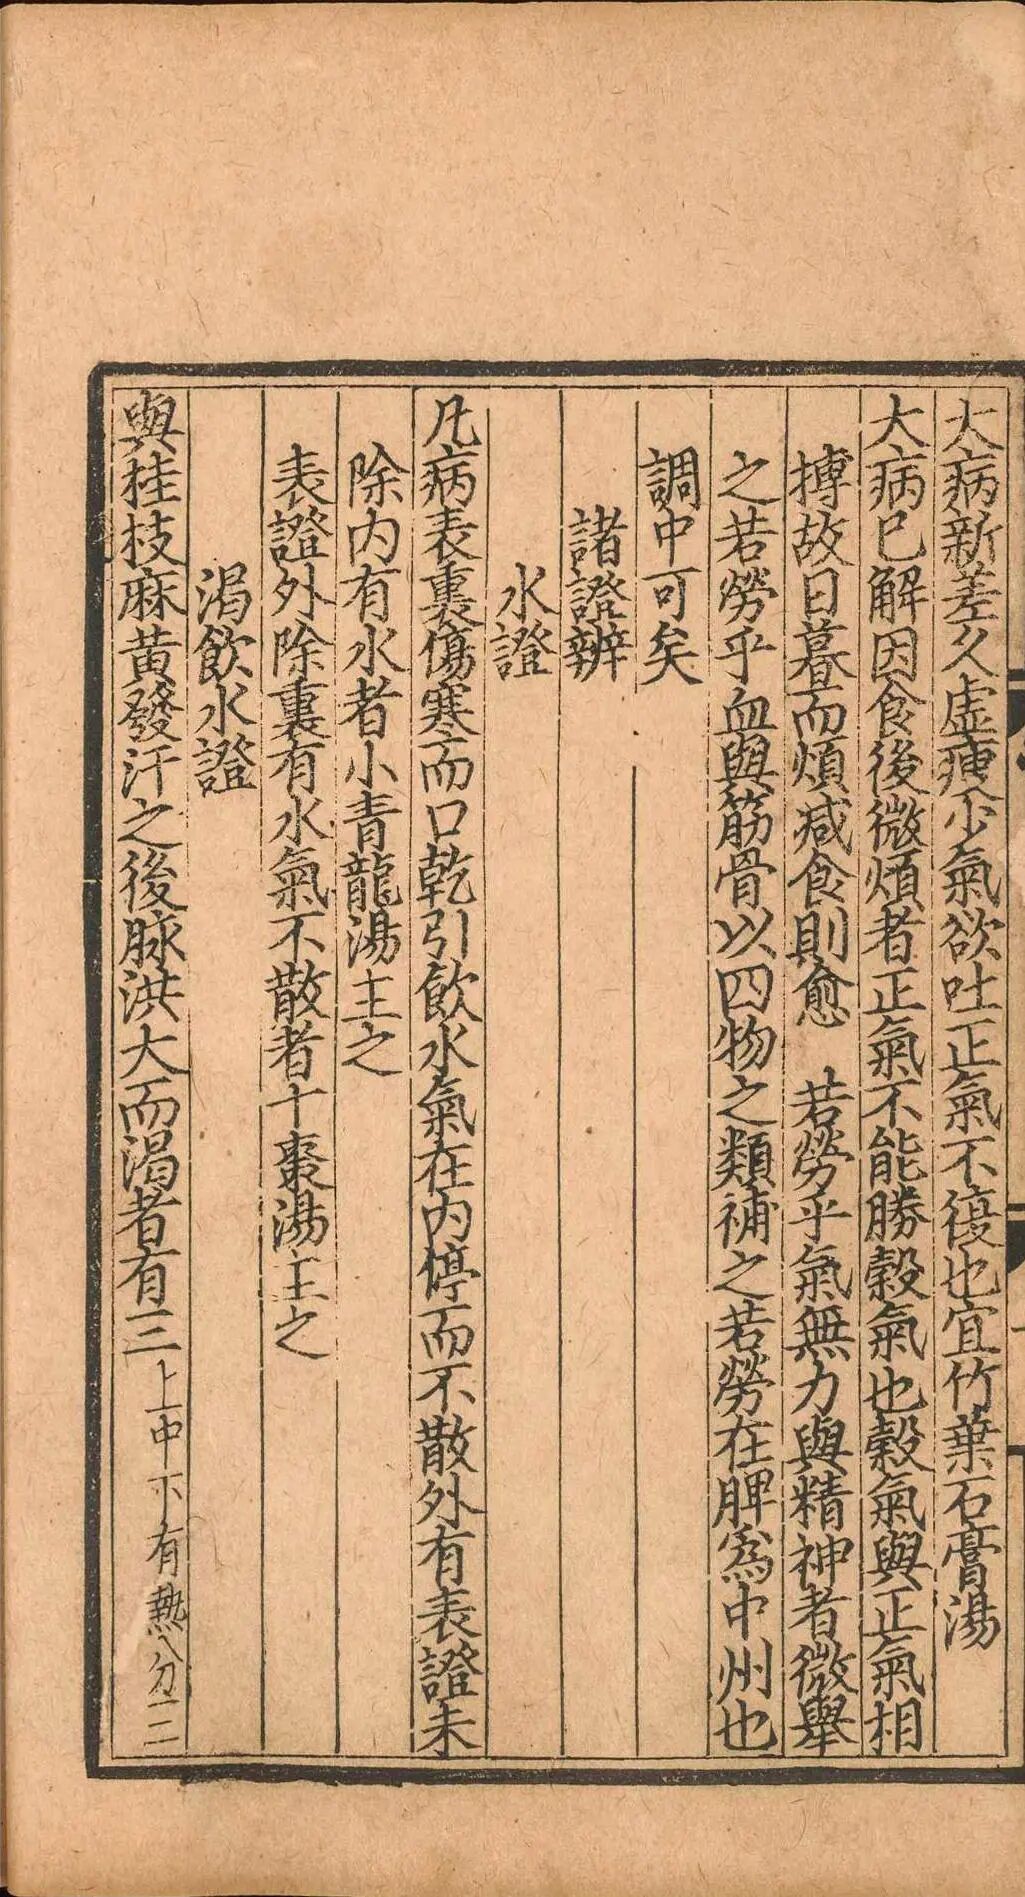 大病新差久虛痩少氣欲吐正氣不復也宜竹葉石膏湯
大病已解因食後微煩者正氣不能勝穀氣也穀氣與正氣相
搏故日暮而煩减食則愈　若勞乎氣無力與精神者微舉
之若勞乎血與筋骨以四物之類補之若勞在脾為中州也
調中可矣
諸證辨
水證
凡病表裏傷寒而口乾引飲水氣在内停而不散外有表證未
除内有水者小青龍湯主之
表證外除裏有水氣不散者十棗湯主之
渴飲水證
與桂枝麻黄發汗之後脉洪大而渴者有三上中下有熱分三